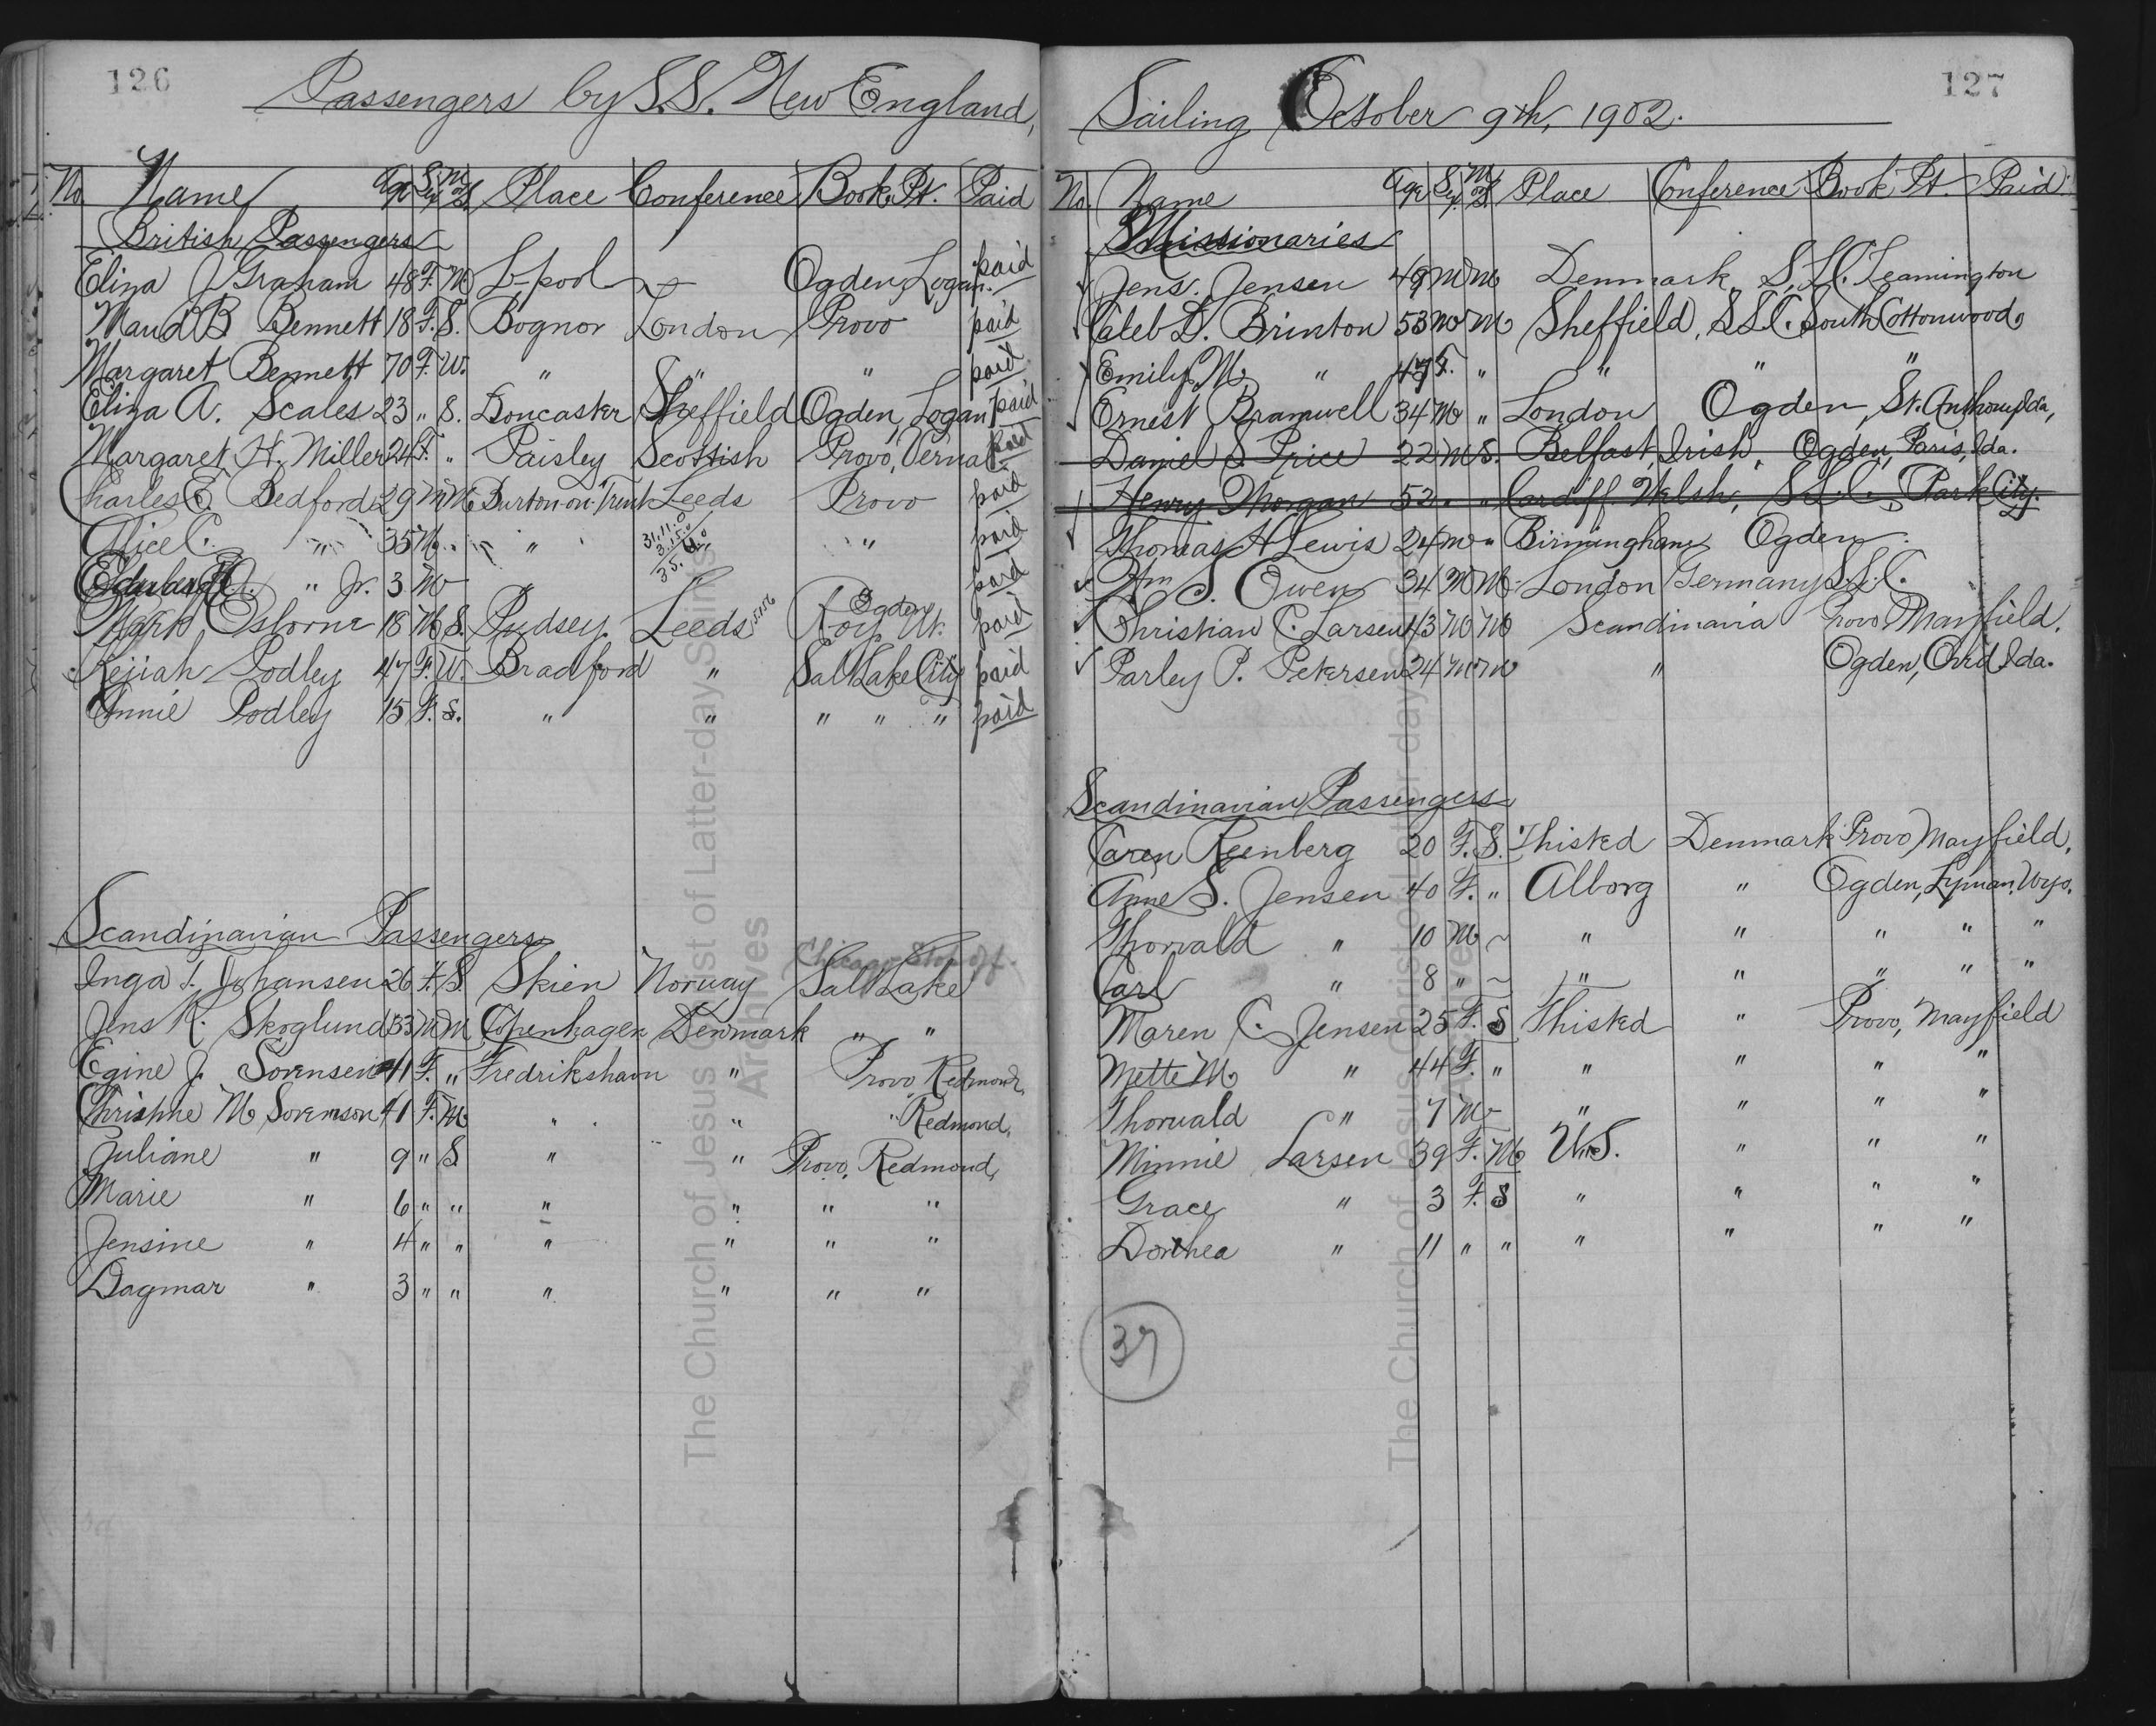 126
Passengers by S.S. New England,
No. Name Age Sex M or S. Place Conference Book. Pt. Paid
British Passengers
Eliza J Graham 48 F. M L-pool ~ Ogden, Logan. paid
Maud B Bennett 18 F. S. Bognor London Provo paid
Margaret Bennett 70 F. W. " " " paid
Eliza A. Scales 23 " S. Doncaster Sheffield Ogden, Logan paid
Margaret H. Miller 24 F. " Paisley Scottish Provo, Vernal paid
Charles E. Bedford 29 M M Burton-on-Trent Leeds Provo paid
Alice C. " 35 " " paid
31.11.0
3.15.0
35.
" Jr. 3 M paid
Mark Osborne 18 M S. Pudsey Leeds Ogden Roy Ut. paid
Keziah Podley 47 F. W. Bradford " Salt Lake City paid
Annie Podley 15 F. S. " " " " " paid
Scandinavian Passengers
Chicago Stop off.
Inga S. Johansen 26 F. S. Skien Norway Salt Lake
Jens K. Skoglund 33 M M Copenhagen Denmark " "
Egine J. Sorensen 41 F. " Fredrikshavn " Provo Redmond,
Christine M Sorenson 41 F. M " " " Redmond,
Juliane " 9 " S " " Provo, Redmond,
Marie " 6 " " " " " "
Jensine " 4 " " " " " "
Dagmar " 3 " " " " " "
The Church of Jesus Christ of Latter-day Saints
Archives
127
Sailing October 9th, 1902.
No. Name Age Sex M or S. Place Conference Book Pt. Paid
Missionaries
Jens. Jensen 49 M M Denmark S.L.C. Leamington
Caleb D. Brinton 53 M M Sheffield, S.L.C. South Cottonwood,
Emily M. " 47 F. " " " "
Ernest Bramwell 34 M " London Ogden, St. Anthony Ida,
Daniel S. Price 22 M S. Belfast, Irish, Ogden, Paris, Ida.
Henry Morgan 52 " " Cardiff Welsh, S.L.C. Park City.
Thomas A Lewis 24 M " Birmingham Ogden.
Wm S. Owen 34 M M London Germany S.L.C.
Christian C. Larsen 43 M M Scandinavia Provo Mayfield.
Parley P. Petersen 24 M M " Ogden, Ovid Ida.
Scandinavian Passengers
Caren Reenberg 20 F. S. Thisted Denmark Provo Mayfield.
Anne S. Jensen 40 F. " Alborg " Ogden, Lyman, Wyo.
Thorvald " 10 M ~ " " " " "
Carl " 8 " ~ " " " " "
Maren C. Jensen 25 F. S Thisted " Provo, Mayfield
Mette M. " 44 F. " " " " "
Thorvald " 7 M " " " "
Minnie Larsen 39 F. M U.S. " " "
Grace " 3 F. S " " " "
Dorthea " 11 " " " " " "
37
The Church of Jesus Christ of Latter-day Saints
Archives